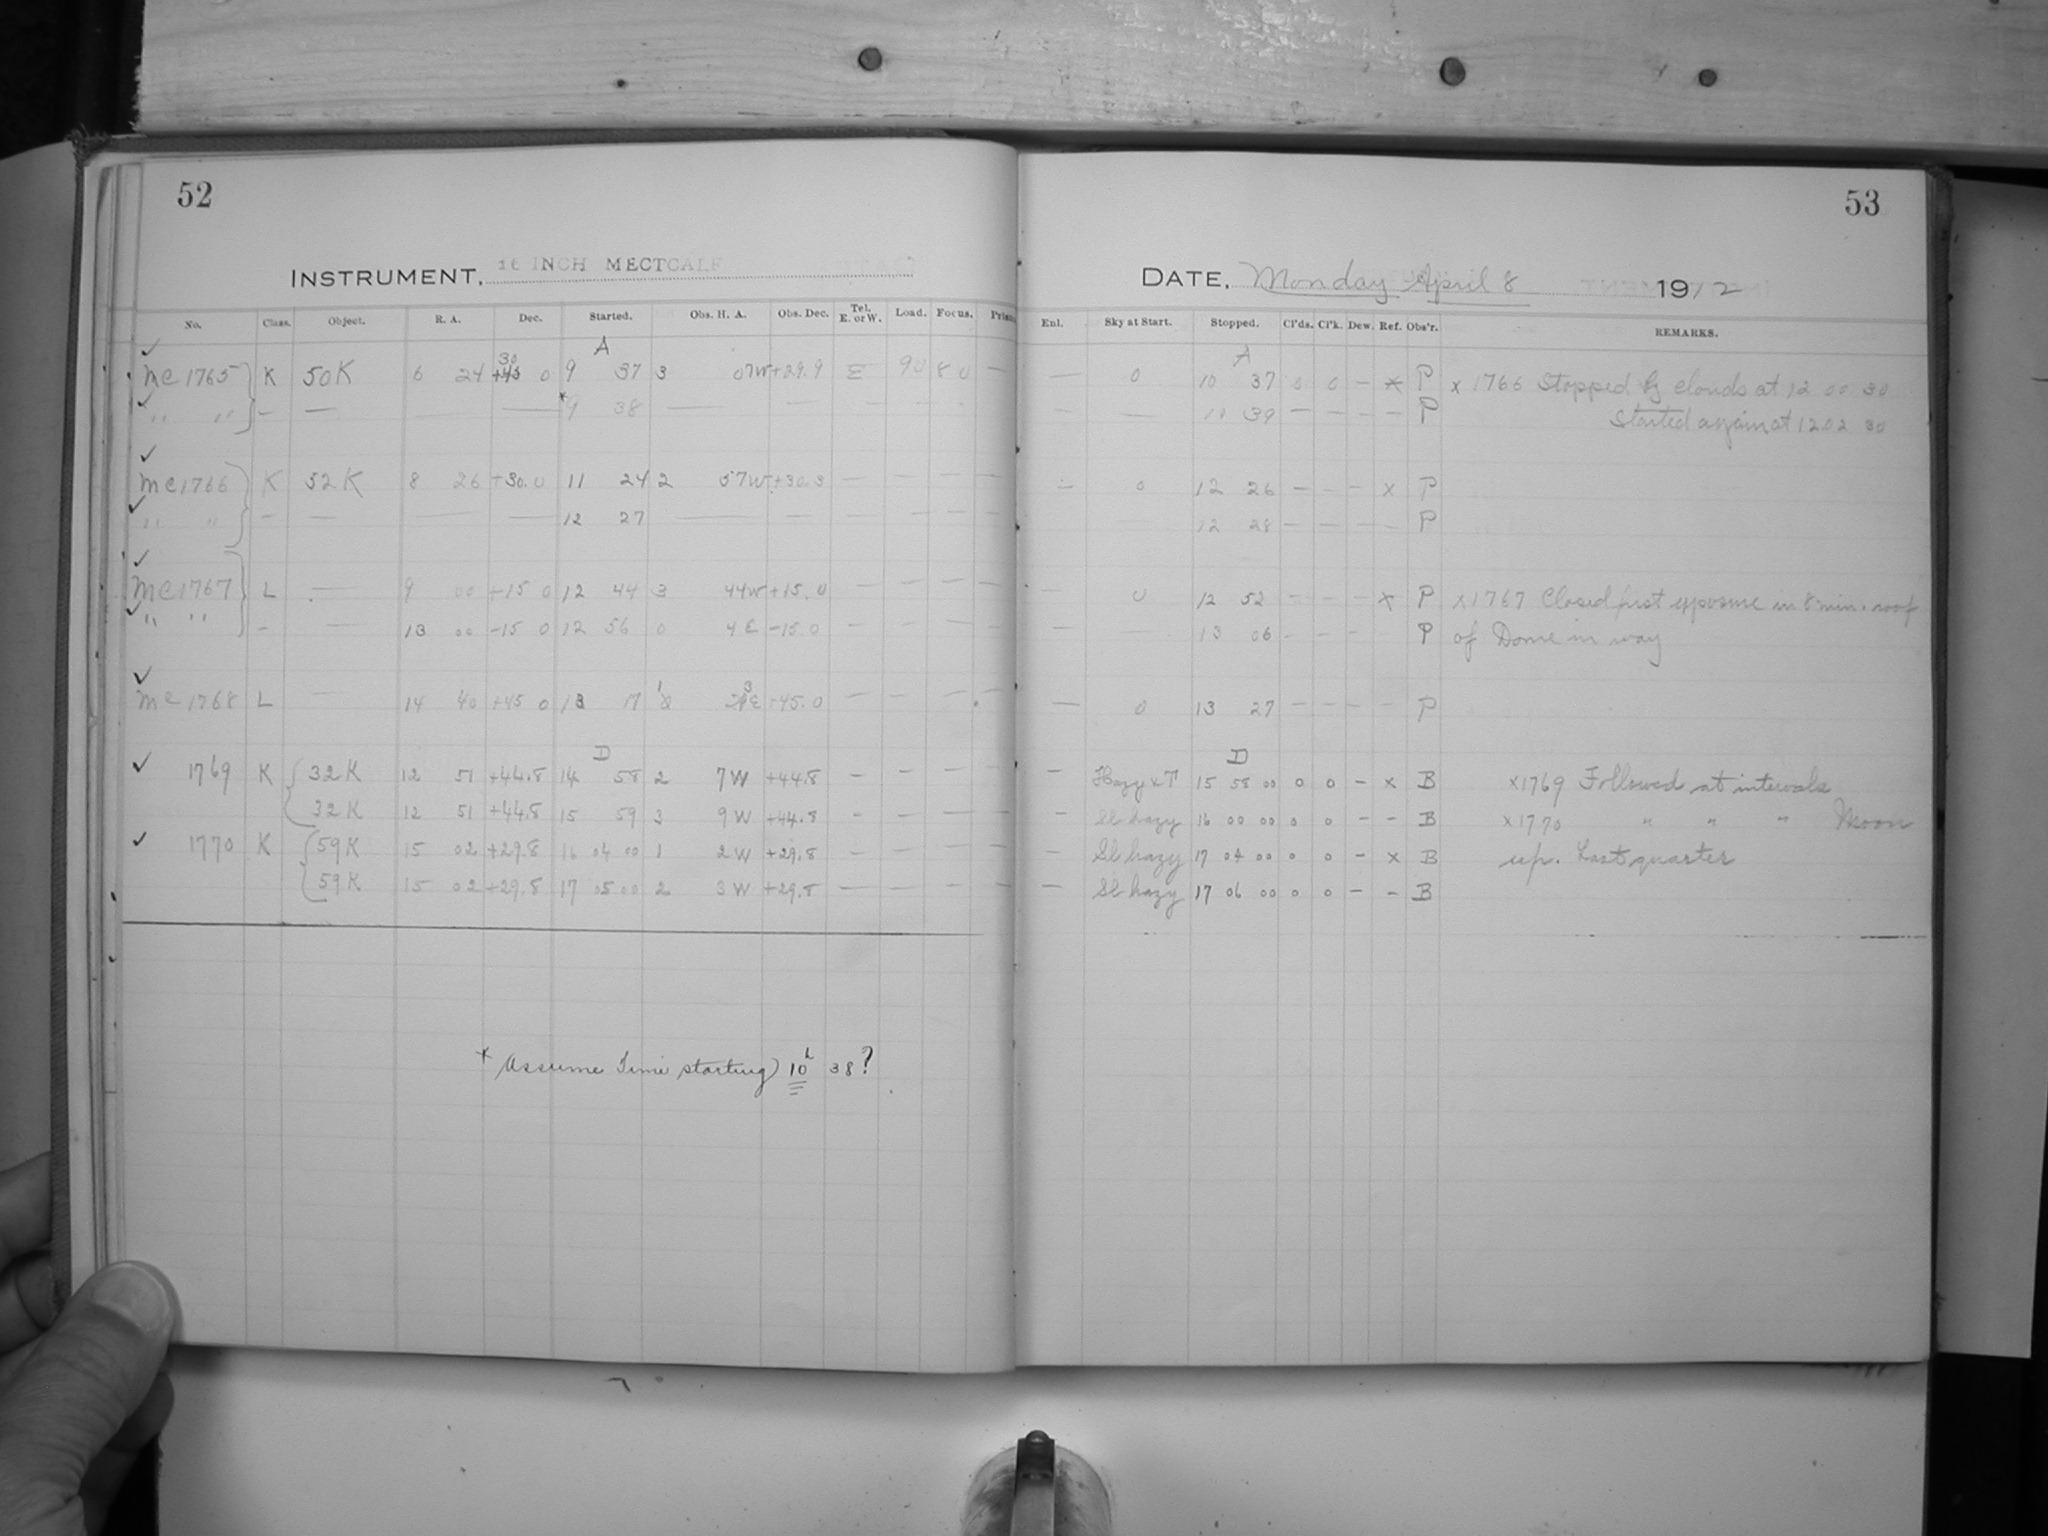 52
INSTRUMENT, 16 INCH MECTCALF
No. Class. Object. R. A. Dec. Started. Obs. H. A. Obs. Dec. Tel. E. or W. Load. Focus. Prism
A
✓ 30
MC 1765 K 50K 6 24 +45 0 9 37 3 07W +29.9 E 90 8 0 —
✓ " " — — — — *9 38 — — — — — —
✓
MC 1766 K 52K 8 26 +30.0 11 24 2 57W +30.3 — — — —
✓ " " — — — — 12 27 — — — — — —
✓
MC 1767 L — 9 00 +15 0 12 44 3 44W +15.0 — — — —
✓ " " — — 13 00 -15 0 12 56 0 4E -15.0 — — — —
✓ 1 3
MC 1768 L — 14 40 +45 0 13 17 E +45.0 — — — —
D
✓ 1769 K 32K 12 51 +44.8 14 58 2 7W +44.8 — — — —
32K 12 51 +44.8 15 59 3 9W +44.8 — — — —
✓ 1770 K 59K 15 02 +29.8 16 04 00 1 2W +29.8 — — — —
59K 15 02 +29.8 17 05 00 2 3W +29.8 — — — —
* Assume Time starting 10h 38?
53
DATE, Monday April 8 1912
Enl. Sky at Start. Stopped. Cl'ds. Cl'k. Dew. Ref. Obs'r. REMARKS.
A
— 0 10 37 0 0 — x P x 1766 Stopped by clouds at 12 00 30
— — 10 39 — — — — P Started again at 12 02 30
— 0 12 26 — — — x P
— 12 28 — — — — P
— 0 12 52 — — — x P x1767 Closed first exposure in 8 min. roof
— — 13 06 — — — P of Dome in way
— 0 13 27 — — — — P
D
— Hazy x T 15 58 00 0 0 — x B x1769 Followed at intervals
— Sl hazy 16 00 00 0 0 — — B x1770 " " " Moon
— Sl hazy 17 04 00 0 0 — x B up. Last quarter
— Sl hazy 17 06 00 0 0 — — B